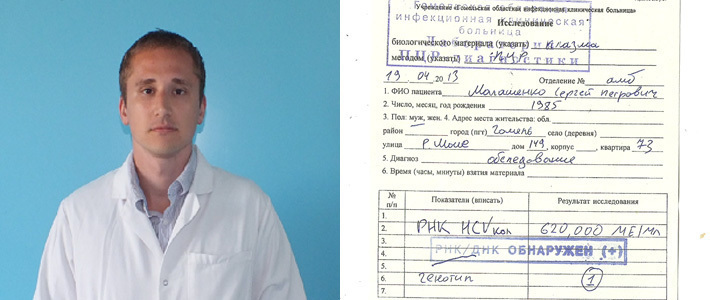 Учреждение «Гомельская областная инфекционная клиническая больница»
инфекционная клиническая
больница
Исследование
биологического материала (указать) плазма
методом (указать) ПЦР
ПЦР диагностики
19 . 04 . 2013 Отделение № амб
1. ФИО пациента Малашенко Сергей Петрович
2. Число, месяц, год рождения 1985
3. Пол: муж, жен. 4. Адрес места жительства: обл.
район город (пгт) Гомель село (деревня)
улица дом 149, корпус , квартира 73
5. Диагноз обследование
6. Время (часы, минуты) взятия материала
№ п/п Показатели (вписать) Результат исследования
1.
2. РНК HCV кол 620,000 МЕ/мл
3. РНК/ДНК ОБНАРУЖЕН (+)
4.
5.
6. генотип 1
7.